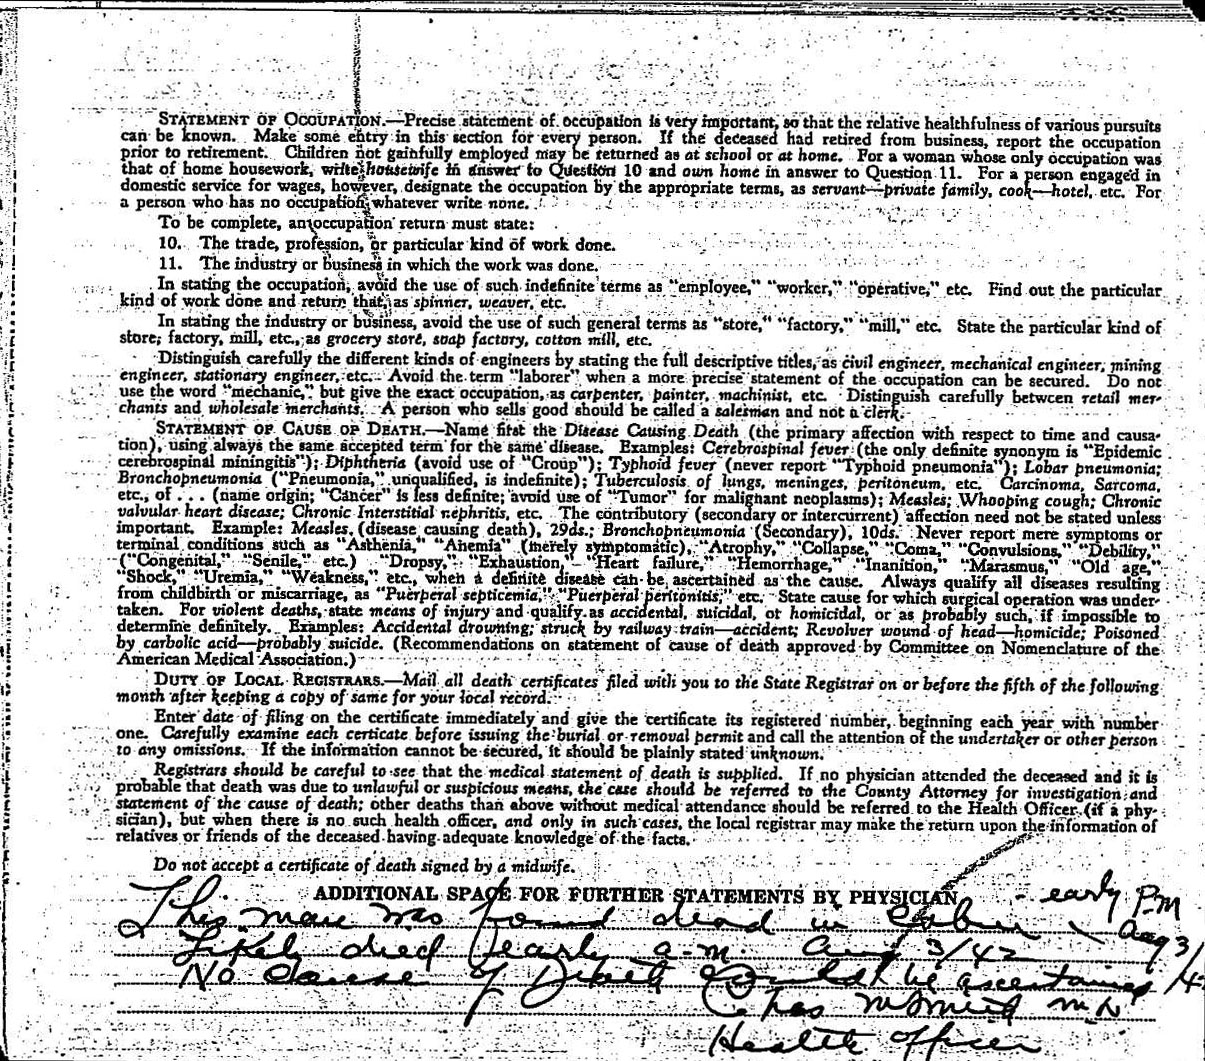 STATEMENT OF OCCUPATION.—Precise statement of occupation is very important, so that the relative healthfulness of various pursuits
can be known. Make some entry in this section for every person. If the deceased had retired from business, report the occupation
prior to retirement. Children not gainfully employed may be returned as at school or at home. For a woman whose only occupation was
that of home housework, write housewife in answer to Question 10 and own home in answer to Question 11. For a person engaged in
domestic service for wages, however, designate the occupation by the appropriate terms, as servant—private family, cook—hotel, etc. For
a person who has no occupation whatever write none.
To be complete, an occupation return must state:
10. The trade, profession, or particular kind of work done.
11. The industry or business in which the work was done.
In stating the occupation, avoid the use of such indefinite terms as "employee," "worker," "operative," etc. Find out the particular
kind of work done and return that, as spinner, weaver, etc.
In stating the industry or business, avoid the use of such general terms as "store," "factory," "mill," etc. State the particular kind of
store, factory, mill, etc., as grocery store, soap factory, cotton mill, etc.
Distinguish carefully the different kinds of engineers by stating the full descriptive titles, as civil engineer, mechanical engineer, mining
engineer, stationary engineer, etc. Avoid the term "laborer" when a more precise statement of the occupation can be secured. Do not
use the word "mechanic," but give the exact occupation, as carpenter, painter, machinist, etc. Distinguish carefully between retail mer-
chants and wholesale merchants. A person who sells good should be called a salesman and not a clerk.
STATEMENT OF CAUSE OF DEATH.—Name first the Disease Causing Death (the primary affection with respect to time and causa-
tion), using always the same accepted term for the same disease. Examples: Cerebrospinal fever (the only definite synonym is "Epidemic
cerebrospinal miningitis"); Diphtheria (avoid use of "Croup"); Typhoid fever (never report "Typhoid pneumonia"); Lobar pneumonia;
Bronchopneumonia ("Pneumonia," unqualified, is indefinite); Tuberculosis of lungs, meninges, peritoneum, etc. Carcinoma, Sarcoma,
etc., of . . . (name origin; "Cancer" is less definite; avoid use of "Tumor" for malignant neoplasms); Measles; Whooping cough; Chronic
valvular heart disease; Chronic Interstitial nephritis, etc. The contributory (secondary or intercurrent) affection need not be stated unless
important. Example: Measles, (disease causing death), 29ds.; Bronchopneumonia (Secondary), 10ds. Never report mere symptoms or
terminal conditions such as "Asthenia," "Anemia" (merely symptomatic), "Atrophy," "Collapse," "Coma," "Convulsions," "Debility,"
("Congenital," "Senile," etc.) "Dropsy," "Exhaustion," "Heart failure," "Hemorrhage," "Inanition," "Marasmus," "Old age,"
"Shock," "Uremia," "Weakness," etc., when a definite disease can be ascertained as the cause. Always qualify all diseases resulting
from childbirth or miscarriage, as "Puerperal septicemia," "Puerperal peritonitis," etc. State cause for which surgical operation was under-
taken. For violent deaths, state means of injury and qualify as accidental, suicidal, or homicidal, or as probably such, if impossible to
determine definitely. Examples: Accidental drowning; struck by railway train—accident; Revolver wound of head—homicide; Poisoned
by carbolic acid—probably suicide. (Recommendations on statement of cause of death approved by Committee on Nomenclature of the
American Medical Association.)
DUTY OF LOCAL REGISTRARS.—Mail all death certificates filed with you to the State Registrar on or before the fifth of the following
month after keeping a copy of same for your local record.
Enter date of filing on the certificate immediately and give the certificate its registered number, beginning each year with number
one. Carefully examine each certicate before issuing the burial or removal permit and call the attention of the undertaker or other person
to any omissions. If the information cannot be secured, it should be plainly stated unknown.
Registrars should be careful to see that the medical statement of death is supplied. If no physician attended the deceased and it is
probable that death was due to unlawful or suspicious means, the case should be referred to the County Attorney for investigation and
statement of the cause of death; other deaths than above without medical attendance should be referred to the Health Officer (if a phy-
sician), but when there is no such health officer, and only in such cases, the local registrar may make the return upon the information of
relatives or friends of the deceased having adequate knowledge of the facts.
Do not accept a certificate of death signed by a midwife.
ADDITIONAL SPACE FOR FURTHER STATEMENTS BY PHYSICIAN
This man was found dead in Cabin - early P.M Aug 3/42
Likely died early a.m Aug 3/42
No Cause of Death Could be ascertained
Chas M.D
Health Officer